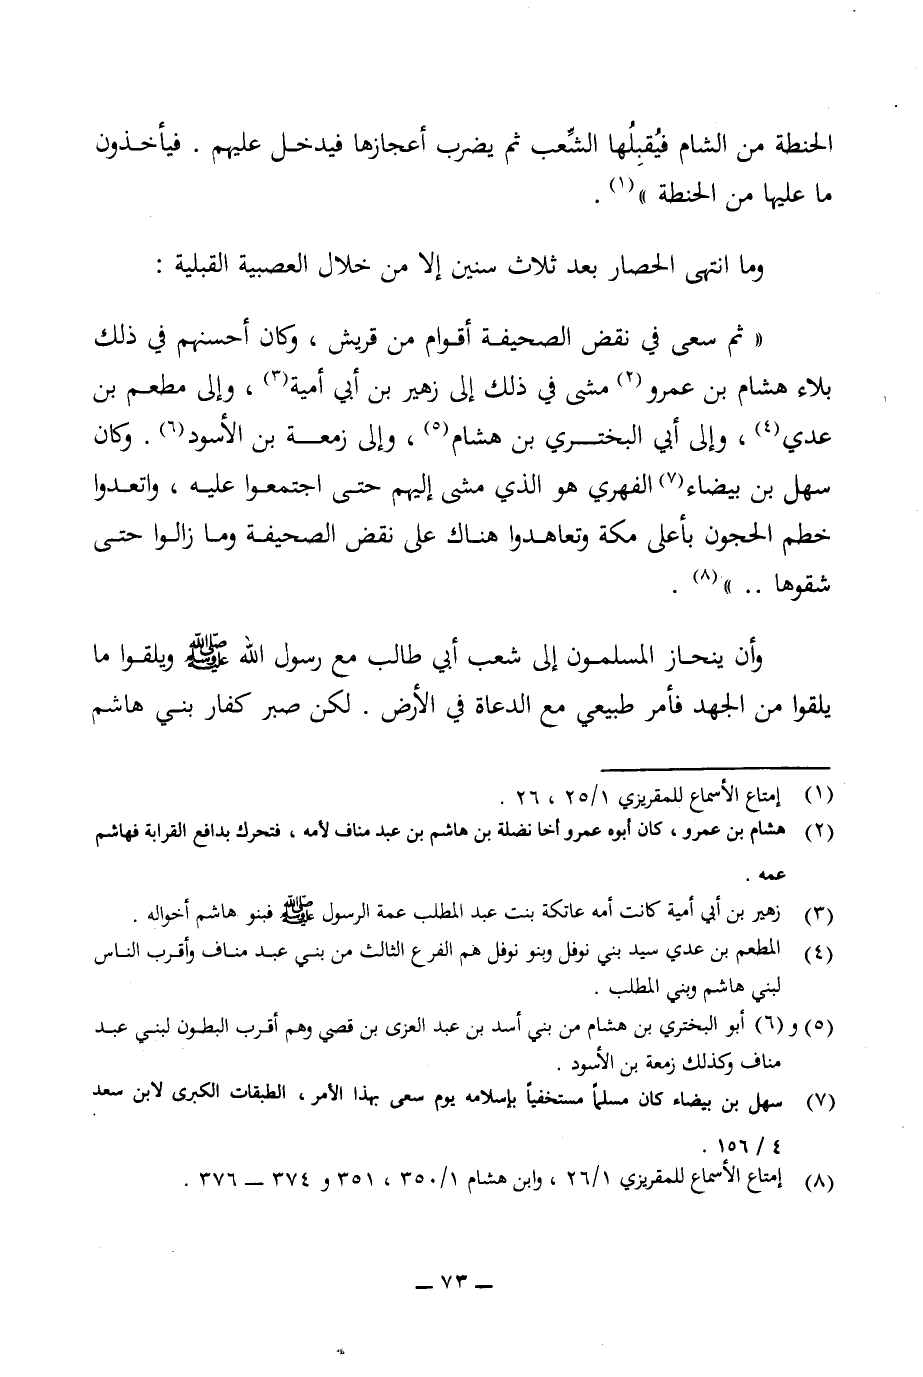 الحنطة من الشام فيُقبِلُها الشِّعب ثم يضرب أعجازها فيدخل عليهم . فيأخذون
ما عليها من الحنطة »(١) .
وما انتهى الحصار بعد ثلاث سنين إلا من خلال العصبية القبلية :
« ثم سعى في نقض الصحيفة أقوام من قريش ، وكان أحسنهم في ذلك
بلاء هشام بن عمرو(٢) مشى في ذلك إلى زهير بن أبي أمية(٣) ، وإلى مطعم بن
عدي(٤) ، وإلى أبي البختري بن هشام(٥) ، وإلى زمعة بن الأسود(٦) . وكان
سهل بن بيضاء(٧) الفهري هو الذي مشى إليهم حتى اجتمعوا عليه ، واتعدوا
خطم الحجون بأعلى مكة وتعاهدوا هناك على نقض الصحيفة وما زالوا حتى
شقوها .. »(٨) .
وأن ينحاز المسلمون إلى شعب أبي طالب مع رسول الله ﷺ ويلقوا ما
يلقوا من الجهد فأمر طبيعي مع الدعاة في الأرض . لكن صبر كفار بني هاشم
(١) إمتاع الأسماع للمقريزي ٢٥/١ ، ٢٦ .
(٢) هشام بن عمرو ، كان أبوه عمرو أخا نضلة بن هاشم بن عبد مناف لأمه ، فتحرك بدافع القرابة فهاشم
عمه .
(٣) زهير بن أبي أمية كانت أمه عاتكة بنت عبد المطلب عمة الرسول ﷺ فبنو هاشم أخواله .
(٤) المطعم بن عدي سيد بني نوفل وبنو نوفل هم الفرع الثالث من بني عبد مناف وأقرب الناس
لبني هاشم وبني المطلب .
(٥) و (٦) أبو البختري بن هشام من بني أسد بن عبد العزى بن قصي وهم أقرب البطون لبني عبد
مناف وكذلك زمعة بن الأسود .
(٧) سهل بن بيضاء كان مسلماً مستخفياً بإسلامه يوم سعى بهذا الأمر ، الطبقات الكبرى لابن سعد
٤ / ١٥٦ .
(٨) إمتاع الأسماع للمقريزي ٢٦/١ ، وابن هشام ٣٥٠/١ ، ٣٥١ و ٣٧٤ — ٣٧٦ .
— ٧٣ —